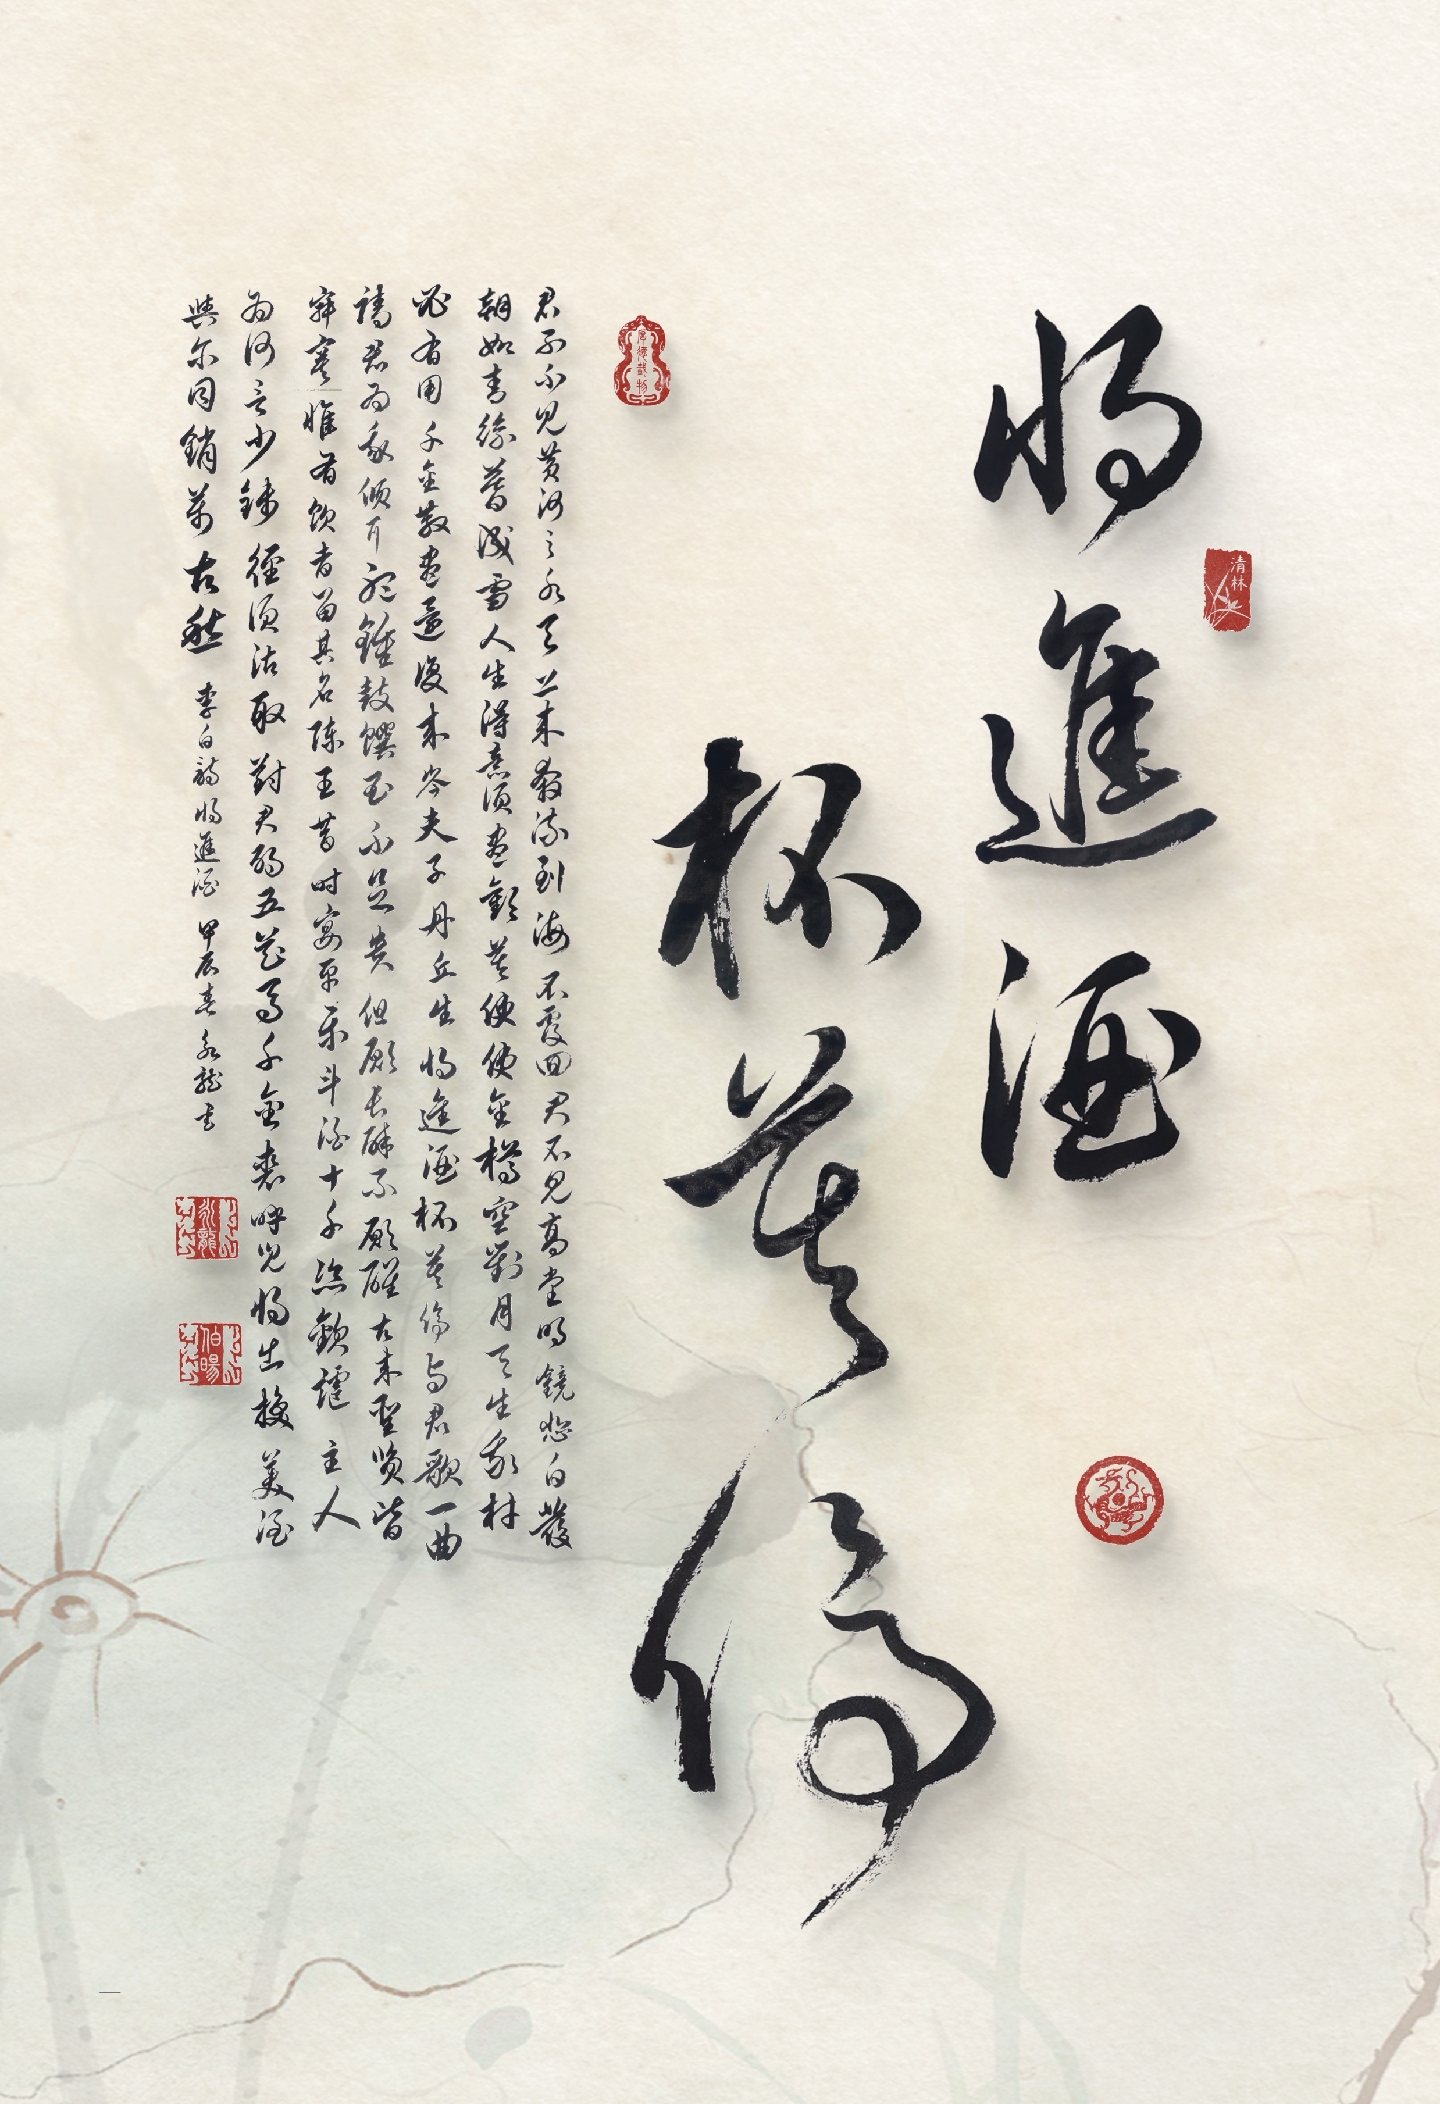 將進酒
杯莫停
清林
厚德載物
君不見黃河之水天上來奔流到海不復回君不見高堂明鏡悲白髮
朝如青絲暮成雪人生得意須盡歡莫使使金樽空對月天生我材
必有用千金散盡還復來岑夫子丹丘生將進酒杯莫停与君歌一曲
請君為我傾耳聽鐘鼓饌玉不足貴但願長醉不願醒古來聖賢皆
寂寞惟有飲者留其名陳王昔时宴平樂斗酒十千恣歡謔主人
為何言少錢徑須沽取對君酌五花馬千金裘呼兒將出換美酒
與尔同銷萬古愁 李白詩將進酒 甲辰春永龍書
永龍
伯暘